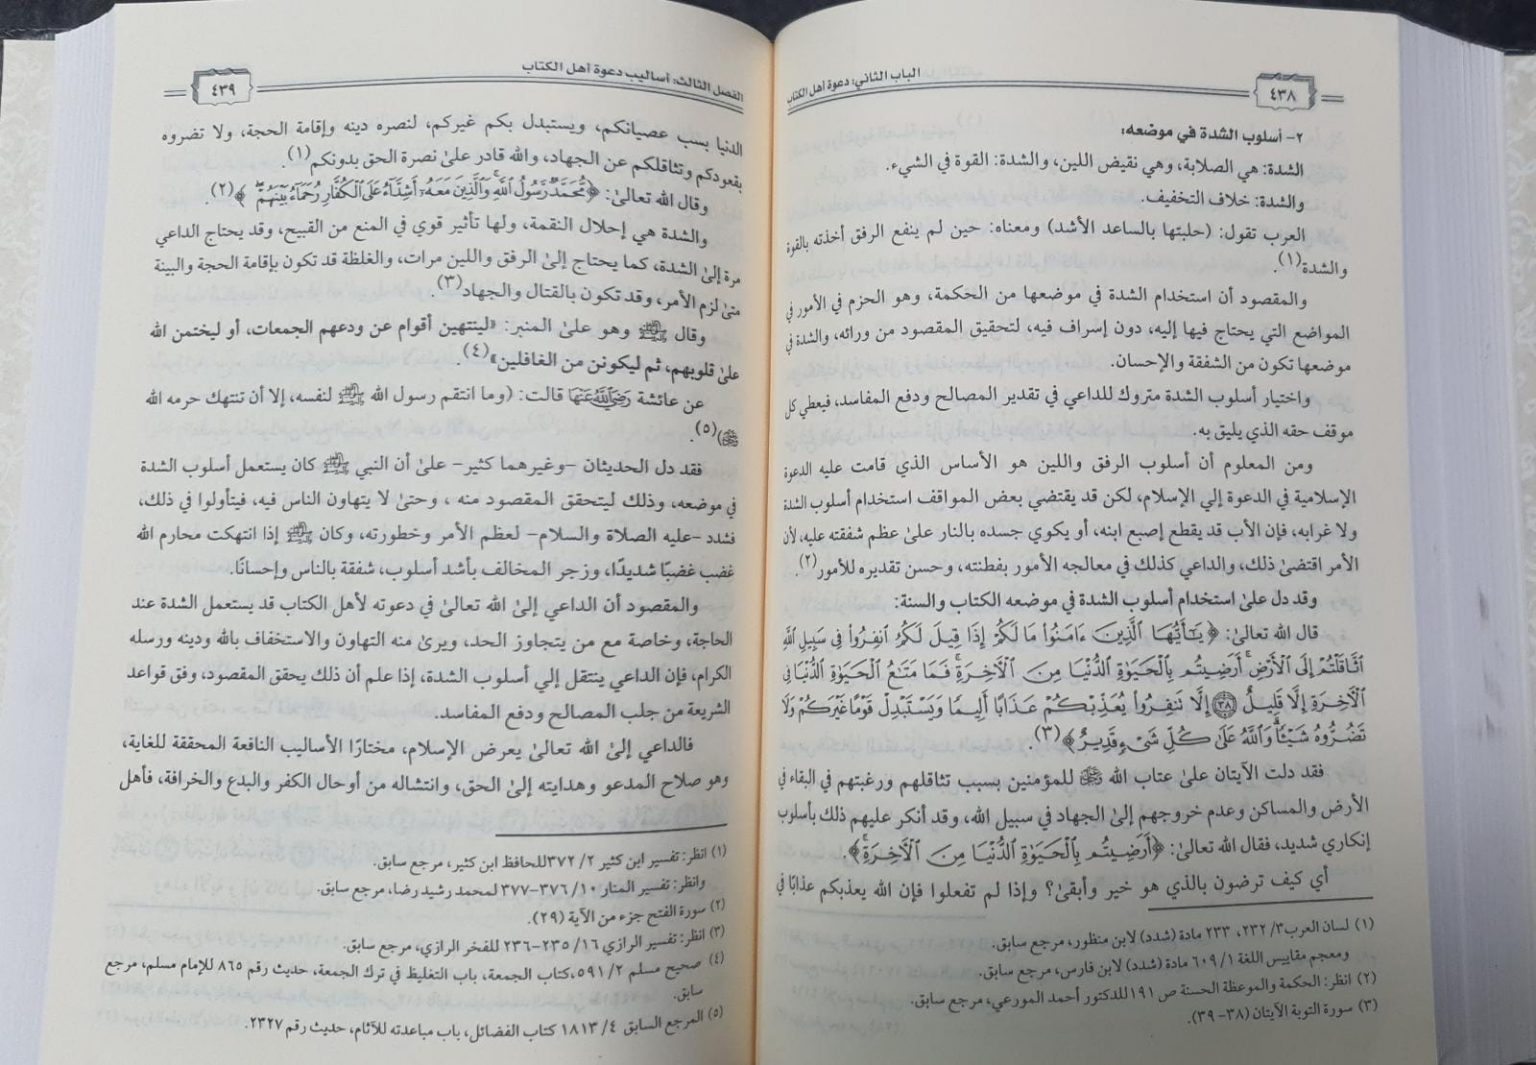 ٤٣٨
الباب الثاني: دعوة أهل الكتاب
٢- أسلوب الشدة في موضعه:
الشدة: هي الصلابة، وهي نقيض اللين، والشدة: القوة في الشيء.
والشدة: خلاف التخفيف.
العرب تقول: (حلبتها بالساعد الأشد) ومعناه: حين لم ينفع الرفق أخذته بالقوة
والشدة(١).
والمقصود أن استخدام الشدة في موضعها من الحكمة، وهو الحزم في الأمور في
المواضع التي يحتاج فيها إليه، دون إسراف فيه، لتحقيق المقصود من ورائه، والشدة في
موضعها تكون من الشفقة والإحسان.
واختيار أسلوب الشدة متروك للداعي في تقدير المصالح ودفع المفاسد، فيعطي كل
موقف حقه الذي يليق به.
ومن المعلوم أن أسلوب الرفق واللين هو الأساس الذي قامت عليه الدعوة
الإسلامية في الدعوة إلي الإسلام، لكن قد يقتضي بعض المواقف استخدام أسلوب الشدة
ولا غرابه، فإن الأب قد يقطع إصبع ابنه، أو يكوي جسده بالنار علىٰ عظم شفقته عليه، لأن
الأمر اقتضىٰ ذلك، والداعي كذلك في معالجه الأمور بفطنته، وحسن تقديره للأمور(٢).
وقد دل علىٰ استخدام أسلوب الشدة في موضعه الكتاب والسنة:
قال الله تعالىٰ: ﴿ يَٰٓأَيُّهَا ٱلَّذِينَ ءَامَنُوا۟ مَا لَكُمْ إِذَا قِيلَ لَكُمُ ٱنفِرُوا۟ فِى سَبِيلِ ٱللَّهِ
ٱثَّاقَلْتُمْ إِلَى ٱلْأَرْضِ ۚ أَرَضِيتُم بِٱلْحَيَوٰةِ ٱلدُّنْيَا مِنَ ٱلْـَٔاخِرَةِ ۚ فَمَا مَتَٰعُ ٱلْحَيَوٰةِ ٱلدُّنْيَا فِى
ٱلْـَٔاخِرَةِ إِلَّا قَلِيلٌ ٣٨ إِلَّا تَنفِرُوا۟ يُعَذِّبْكُمْ عَذَابًا أَلِيمًا وَيَسْتَبْدِلْ قَوْمًا غَيْرَكُمْ وَلَا
تَضُرُّوهُ شَيْـًٔا ۗ وَٱللَّهُ عَلَىٰ كُلِّ شَىْءٍ قَدِيرٌ ﴾(٣).
فقد دلت الآيتان علىٰ عتاب الله ﷻ للمؤمنين بسبب تثاقلهم ورغبتهم في البقاء في
الأرض والمساكن وعدم خروجهم إلىٰ الجهاد في سبيل الله، وقد أنكر عليهم ذلك بأسلوب
إنكاري شديد، فقال الله تعالىٰ: ﴿أَرَضِيتُم بِٱلْحَيَوٰةِ ٱلدُّنْيَا مِنَ ٱلْـَٔاخِرَةِ ۚ﴾.
أي كيف ترضون بالذي هو خير وأبقىٰ؟ وإذا لم تفعلوا فإن الله يعذبكم عذابًا في
(١) لسان العرب٣/ ٢٣٢، ٢٣٣ مادة (شدد) لابن منظور، مرجع سابق.
ومعجم مقاييس اللغة ١/ ٦٠٩ مادة (شدد) لابن فارس، مرجع سابق.
(٢) انظر: الحكمة والموعظة الحسنة ص ١٩١ للدكتور أحمد المورعي، مرجع سابق.
(٣) سورة التوبة الآيتان (٣٨- ٣٩).
الفصل الثالث: أساليب دعوة أهل الكتاب
٤٣٩
الدنيا بسب عصيانكم، ويستبدل بكم غيركم، لنصره دينه وإقامة الحجة، ولا تضروه
بقعودكم وتثاقلكم عن الجهاد، والله قادر علىٰ نصرة الحق بدونكم(١).
وقال الله تعالىٰ: ﴿ مُّحَمَّدٌ رَّسُولُ ٱللَّهِ ۚ وَٱلَّذِينَ مَعَهُۥٓ أَشِدَّآءُ عَلَى ٱلْكُفَّارِ رُحَمَآءُ بَيْنَهُمْ ۖ ﴾(٢).
والشدة هي إحلال النقمة، ولها تأثير قوي في المنع من القبيح، وقد يحتاج الداعي
مرة إلىٰ الشدة، كما يحتاج إلىٰ الرفق واللين مرات، والغلظة قد تكون بإقامة الحجة والبينة
متىٰ لزم الأمر، وقد تكون بالقتال والجهاد(٣).
وقال ﷺ وهو علىٰ المنبر: «لينتهين أقوام عن ودعهم الجمعات، أو ليختمن الله
علىٰ قلوبهم، ثم ليكونن من الغافلين»(٤).
عن عائشة رَضِيَ اللَّهُ عَنْهَا قالت: (وما انتقم رسول الله ﷺ لنفسه، إلا أن تنتهك حرمه الله
ﷻ)(٥).
فقد دل الحديثان –وغيرهما كثير– علىٰ أن النبي ﷺ كان يستعمل أسلوب الشدة
في موضعه، وذلك ليتحقق المقصود منه ، وحتىٰ لا يتهاون الناس فيه، فيتأولوا في ذلك،
فشدد –عليه الصلاة والسلام– لعظم الأمر وخطورته، وكان ﷺ إذا انتهكت محارم الله
غضب غضبًا شديدًا، وزجر المخالف بأشد أسلوب، شفقة بالناس وإحسانًا.
والمقصود أن الداعي إلىٰ الله تعالىٰ في دعوته لأهل الكتاب قد يستعمل الشدة عند
الحاجة، وخاصة مع من يتجاوز الحد، ويرىٰ منه التهاون والاستخفاف بالله ودينه ورسله
الكرام، فإن الداعي ينتقل إلي أسلوب الشدة، إذا علم أن ذلك يحقق المقصود، وفق قواعد
الشريعة من جلب المصالح ودفع المفاسد.
فالداعي إلىٰ الله تعالىٰ يعرض الإسلام، مختارًا الأساليب النافعة المحققة للغاية،
وهو صلاح المدعو وهدايته إلىٰ الحق، وانتشاله من أوحال الكفر والبدع والخرافة، فأهل
(١) انظر: تفسير ابن كثير ٢/ ٣٧٢للحافظ ابن كثير، مرجع سابق.
وانظر: تفسير المنار ١٠/ ٣٧٦–٣٧٧ لمحمد رشيد رضا، مرجع سابق.
(٢) سورة الفتح جزء من الآية (٢٩).
(٣) انظر: تفسير الرازي ١٦/ ٢٣٥–٢٣٦ للفخر الرازي، مرجع سابق.
(٤) صحيح مسلم ٢/ ٥٩١،كتاب الجمعة، باب التغليظ في ترك الجمعة، حديث رقم ٨٦٥ للإمام مسلم، مرجع
سابق.
(٥) المرجع السابق ٤/ ١٨١٣ كتاب الفضائل، باب مباعدته للآثام، حديث رقم ٢٣٢٧.